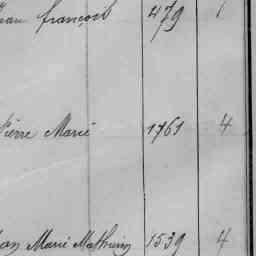 françois 479 1
Pierre Marie 1761 4
Marie Mathurin 1539 4